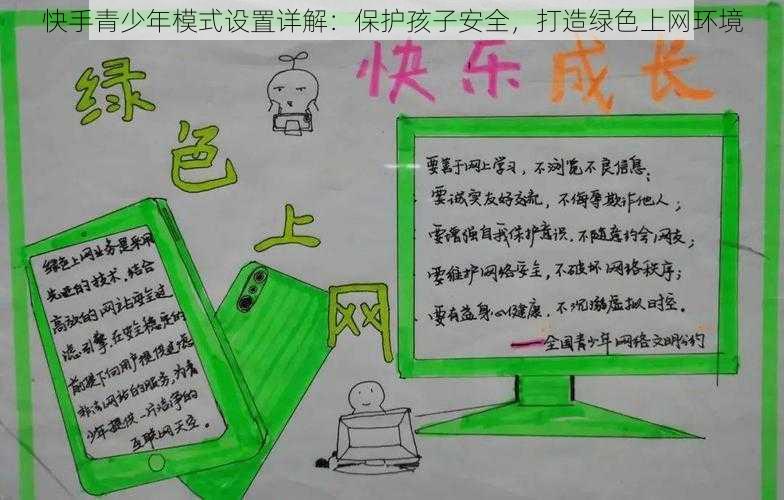 快手青少年模式设置详解：保护孩子安全，打造绿色上网环境
绿色上网
快乐成长
要善于网上学习，不浏览不良信息；
要诚实友好交流，不侮辱欺诈他人；
要增强自我保护意识，不随意约会网友；
要维护网络安全，不破坏网络秩序；
要有益身心健康，不沉溺虚拟时空。
——全国青少年网络文明公约
绿色上网业务是采用
先进的技术，结合
高效的网站安全过
滤引擎在安全稳定的
前提下向用户提供过滤
非法网站的服务，为青
少年提供一片洁净的
互联网天空。